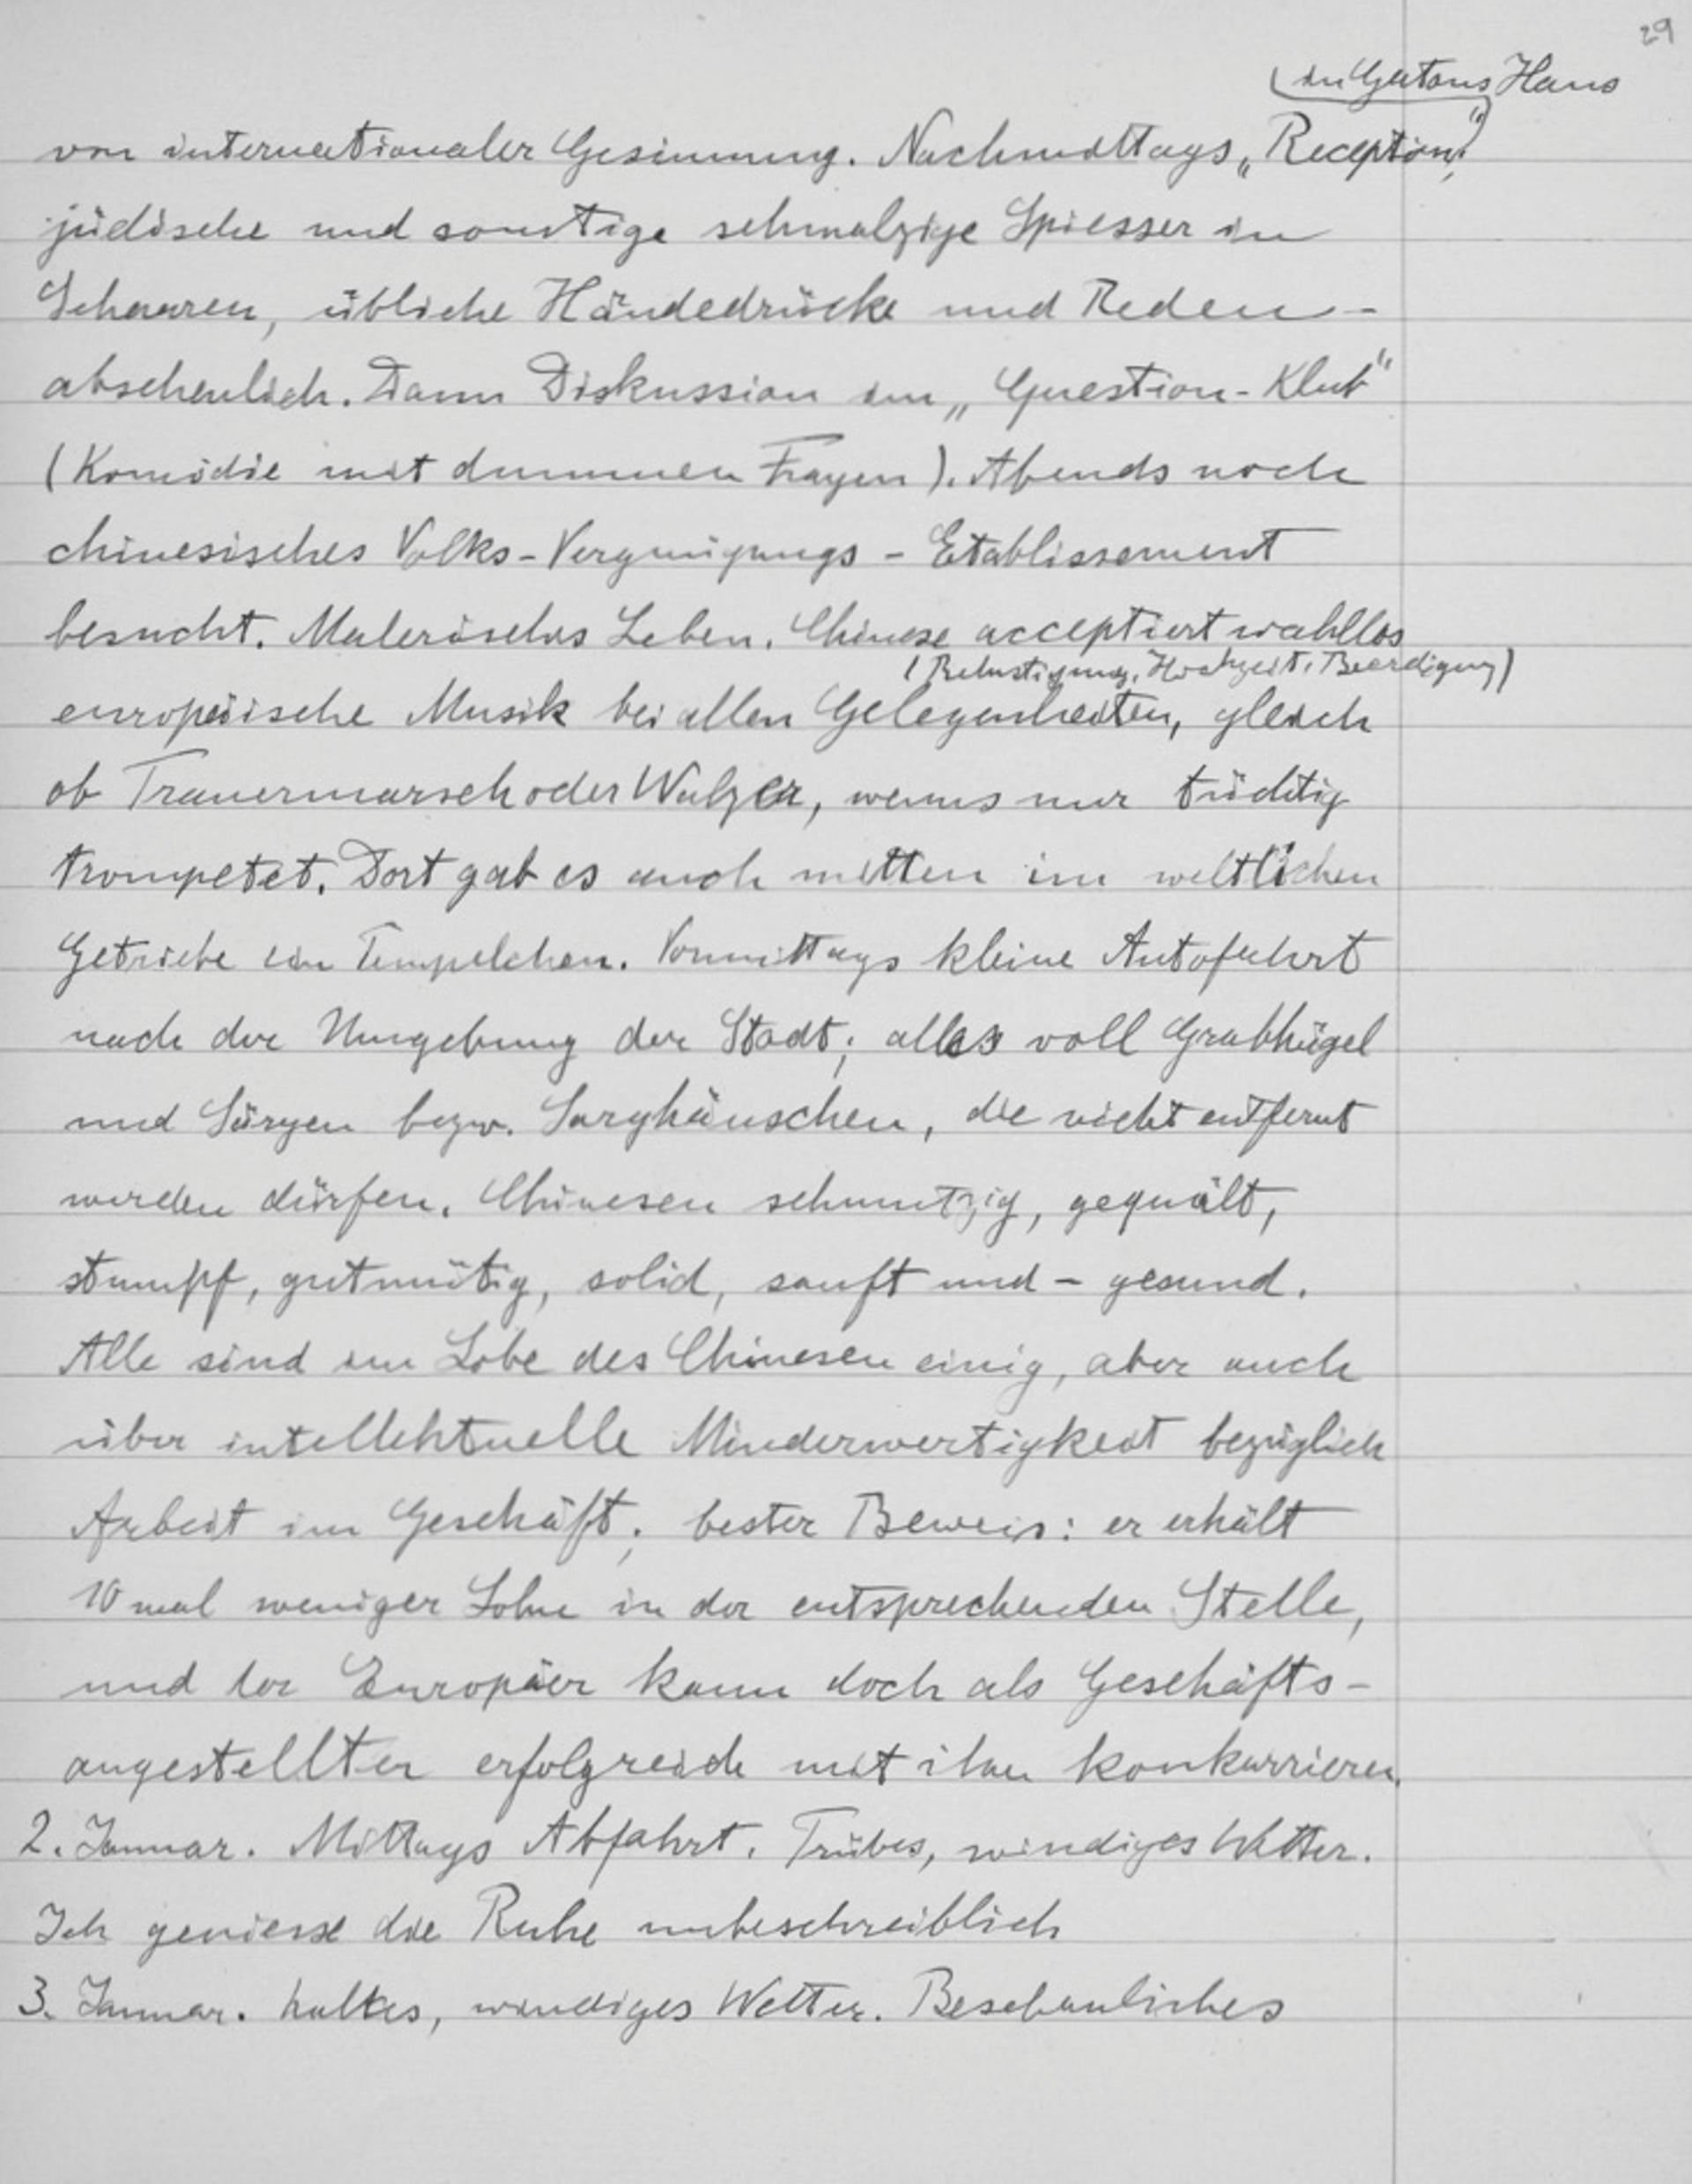 29
(in Gatons Haus
von internationaler Gesinnung. Nachmittags „Reception“,
jüdische und sonstige schmalzige Spiesser in
Scharen, übliche Händedrücke und Reden –
abscheulich. Dann Diskussion im „Question-Klub“
(Komödie mit dummen Fragen). Abends noch
chinesisches Volks-Vergnügungs-Etablissement
besucht. Malerisches Leben. Chinese acceptiert wahllos
(Belustigung, Hochzeit, Beerdigung)
europäische Musik bei allen Gelegenheiten, gleich
ob Trauermarsch oder Walzer, wenns nur tüchtig
trompetet. Dort gab es auch mitten im weltlichen
Getriebe ein Tempelchen. Vormittags kleine Autofahrt
nach der Umgebung der Stadt; alles voll Grabhügel
und Särgen bezw. Sarghäuschen, die nicht entfernt
werden dürfen. Chinesen schmutzig, gequält,
stumpf, gutmütig, solid, sanft und – gesund.
Alle sind im Lobe des Chinesen einig, aber auch
über intellektuelle Minderwertigkeit bezüglich
Arbeit im Geschäft; bester Beweis: er erhält
10 mal weniger Lohn in der entsprechenden Stelle,
und der Europäer kann doch als Geschäfts-
angestellter erfolgreich mit ihm konkurrieren.
2. Januar. Mittags Abfahrt. Trübes, windiges Wetter.
Ich geniesse die Ruhe unbeschreiblich
3. Januar. kaltes, windiges Wetter. Beschauliches